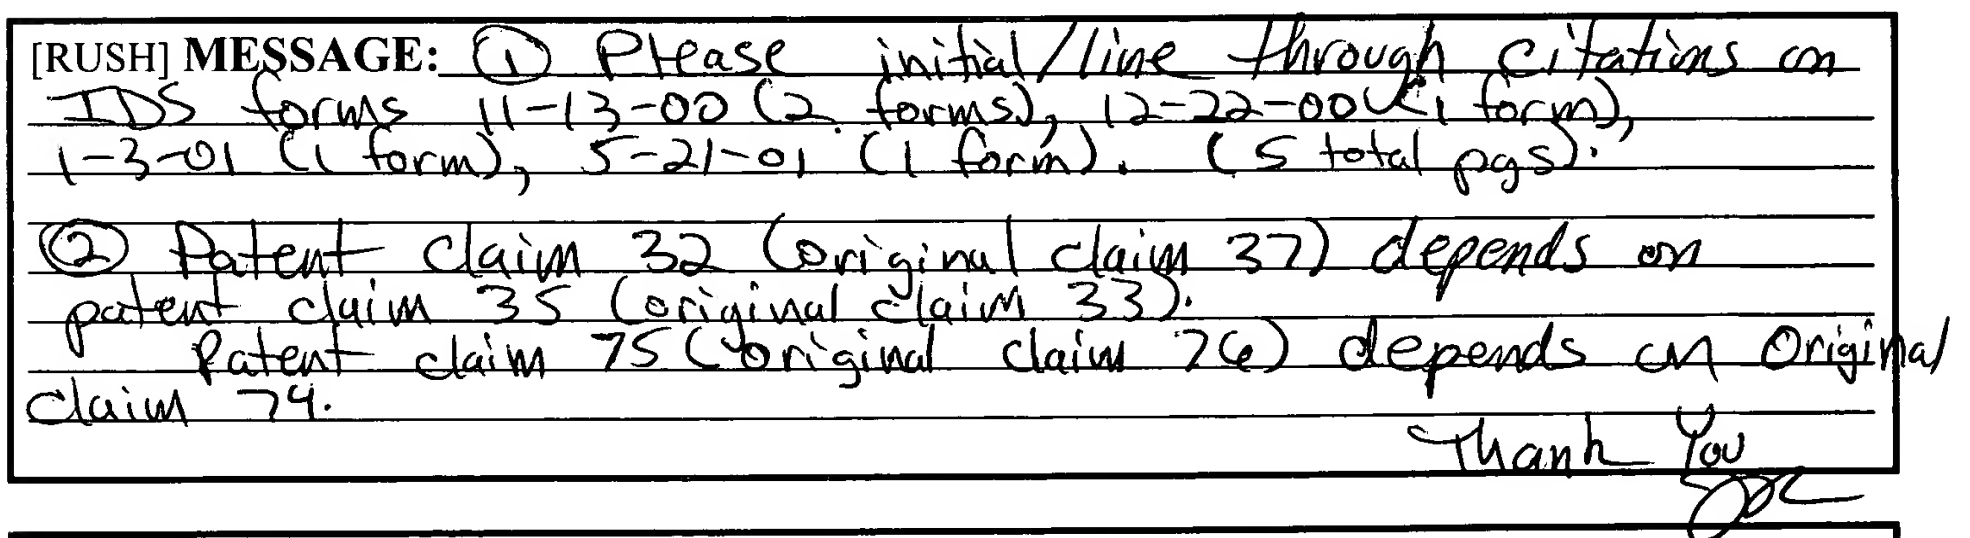 [RUSH] MESSAGE: ① Please initial/line through citations on
IDS forms 11-13-00 (2 forms), 12-22-00 (1 form),
1-3-01 (1 form), 5-21-01 (1 form). (5 total pgs).
② Patent claim 32 (original claim 37) depends on
patent claim 35 (original claim 33).
Patent claim 75 (original claim 76) depends on Original
claim 74.
Thank You